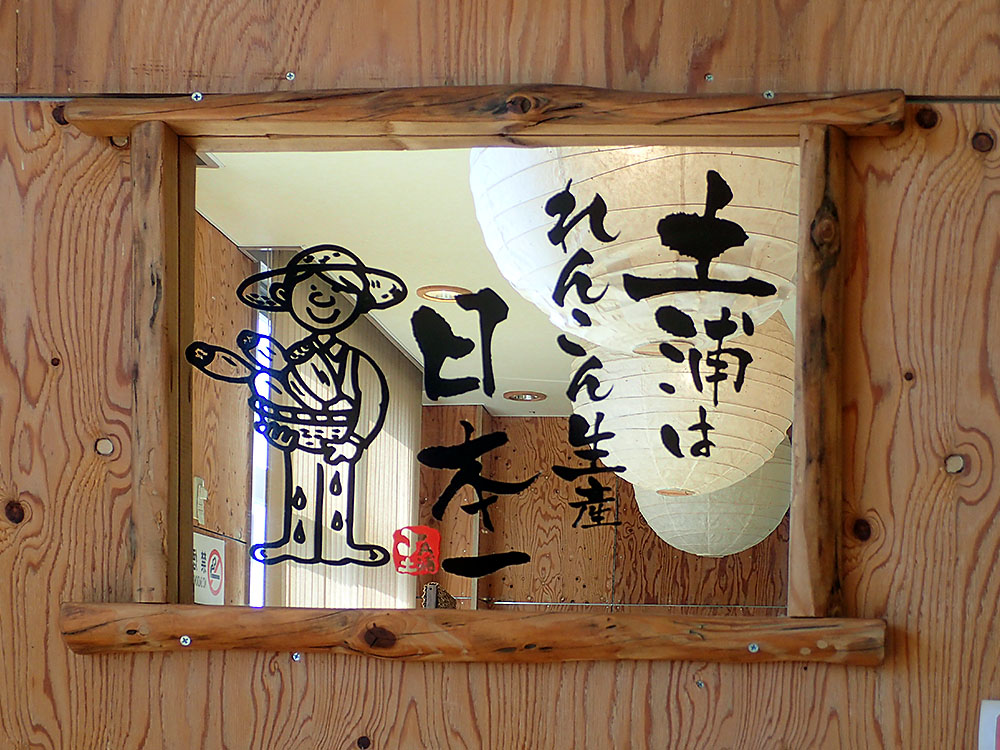 土浦は
れんこん生産
日本一
禁